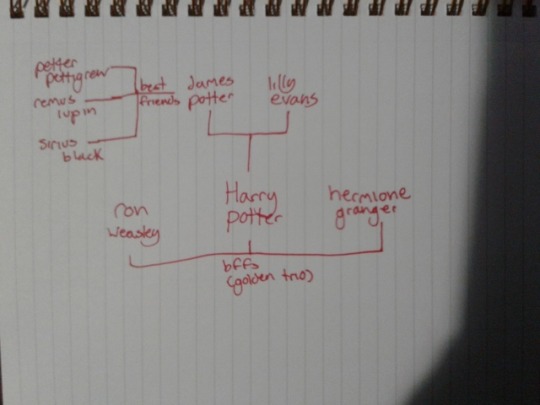 petter
pettigrew
remus
lupin
sirius
black
best
friends
James
potter
lilly
evans
Harry
potter
ron
weasley
hermione
granger
bffs
(golden trio)